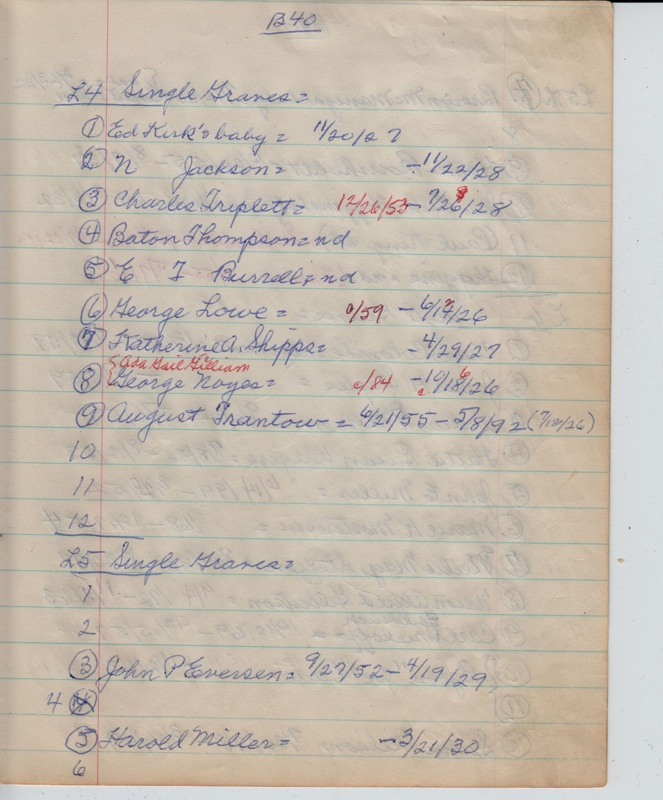 B40
L4 Single Graves =
① Ed Kirk's baby = 11/20/27
② N Jackson = - 11/22/28
③ Charles Triplett = 12/26/53 - 7/26/28
④ Baton Thompson = nd
⑤ E F Burrell = nd
⑥ George Lowe = c/59 - 6/17/26
⑦ Katherine A. Shipps = - 4/29/27
{Ada Gail Gilliam
⑧ {George Noyes = c/84 - 10/18/26
⑨ August Trantow = 6/21/55 - 5/8/92 (7/12/26)
10
11
12
L5 Single Graves =
1
2
③ John P Eversen = 9/27/52 - 4/19/29
4
⑤ Harold Miller = - 3/21/30
6